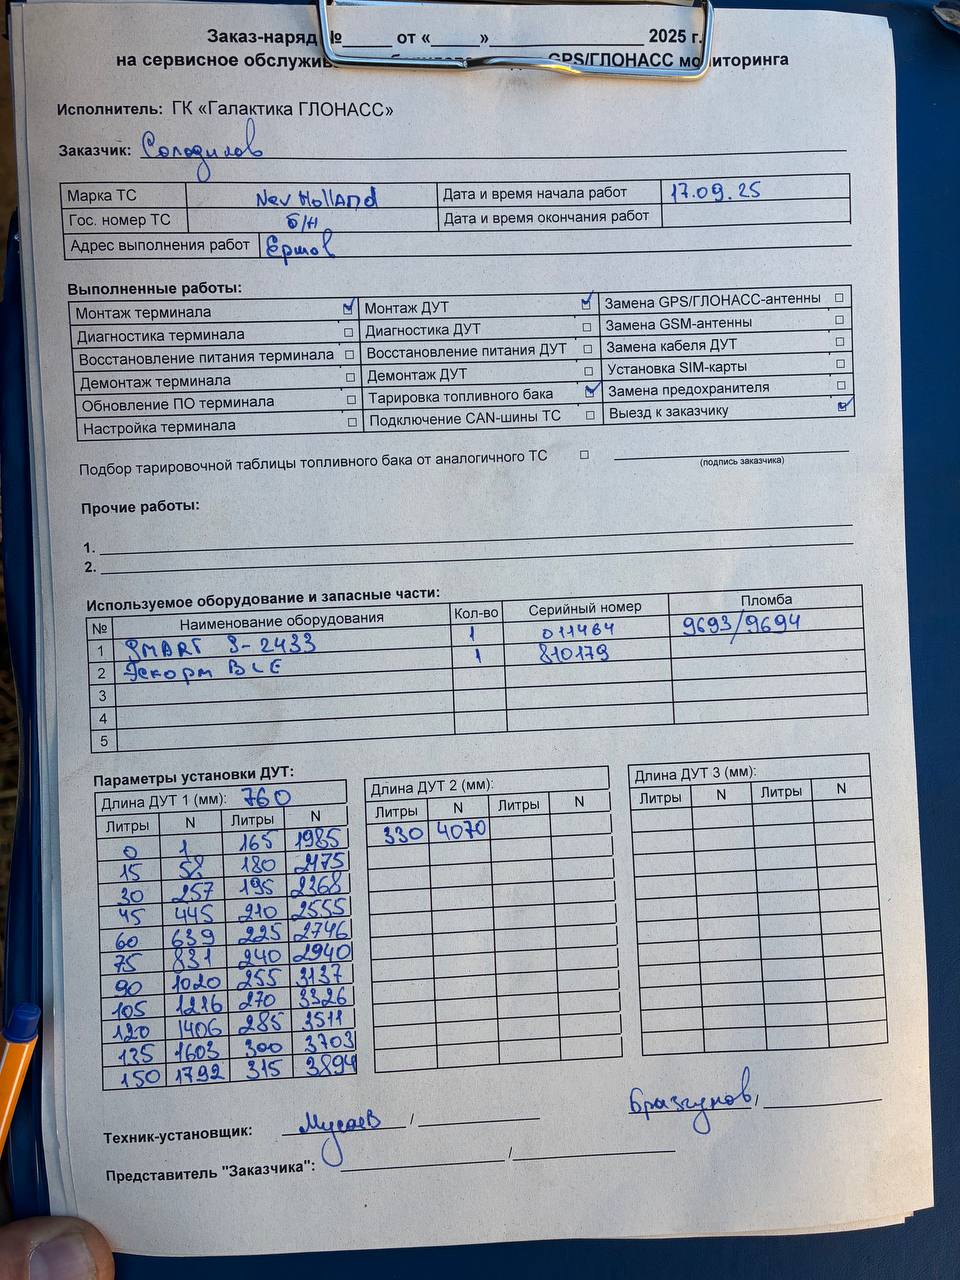 Заказ-наряд №_____ от «_____»________________ 2025 г.
на сервисное обслужив GPS/ГЛОНАСС мониторинга
Исполнитель: ГК «Галактика ГЛОНАСС»
Заказчик: Солодилов
Марка ТС New Holland Дата и время начала работ 17.09.25
Гос. номер ТС Б/Н Дата и время окончания работ
Адрес выполнения работ Ершов
Выполненные работы:
Монтаж терминала ☑ Монтаж ДУТ ☑ Замена GPS/ГЛОНАСС-антенны ☐
Диагностика терминала ☐ Диагностика ДУТ ☐ Замена GSM-антенны ☐
Восстановление питания терминала ☐ Восстановление питания ДУТ ☐ Замена кабеля ДУТ ☐
Демонтаж терминала ☐ Демонтаж ДУТ ☐ Установка SIM-карты ☐
Обновление ПО терминала ☐ Тарировка топливного бака ☑ Замена предохранителя ☐
Настройка терминала ☐ Подключение CAN-шины ТС ☐ Выезд к заказчику ☑
Подбор тарировочной таблицы топливного бака от аналогичного ТС ☐
(подпись заказчика)
Прочие работы:
1.
2.
Используемое оборудование и запасные части:
№ Наименование оборудования Кол-во Серийный номер Пломба
1 SMART S-2433 1 011464 9693/9694
2 Эскорт BLE 1 810179
3
4
5
Параметры установки ДУТ:
Длина ДУТ 1 (мм): 760 Длина ДУТ 2 (мм): Длина ДУТ 3 (мм):
Литры N Литры N Литры N Литры N Литры N Литры N
0 1 165 1985 330 4070
15 58 180 2175
30 257 195 2368
45 445 210 2555
60 639 225 2746
75 831 240 2940
90 1020 255 3137
105 1216 270 3326
120 1406 285 3511
135 1603 300 3703
150 1792 315 3894
Техник-установщик: Мусаев / Бразгунов /
Представитель "Заказчика": /